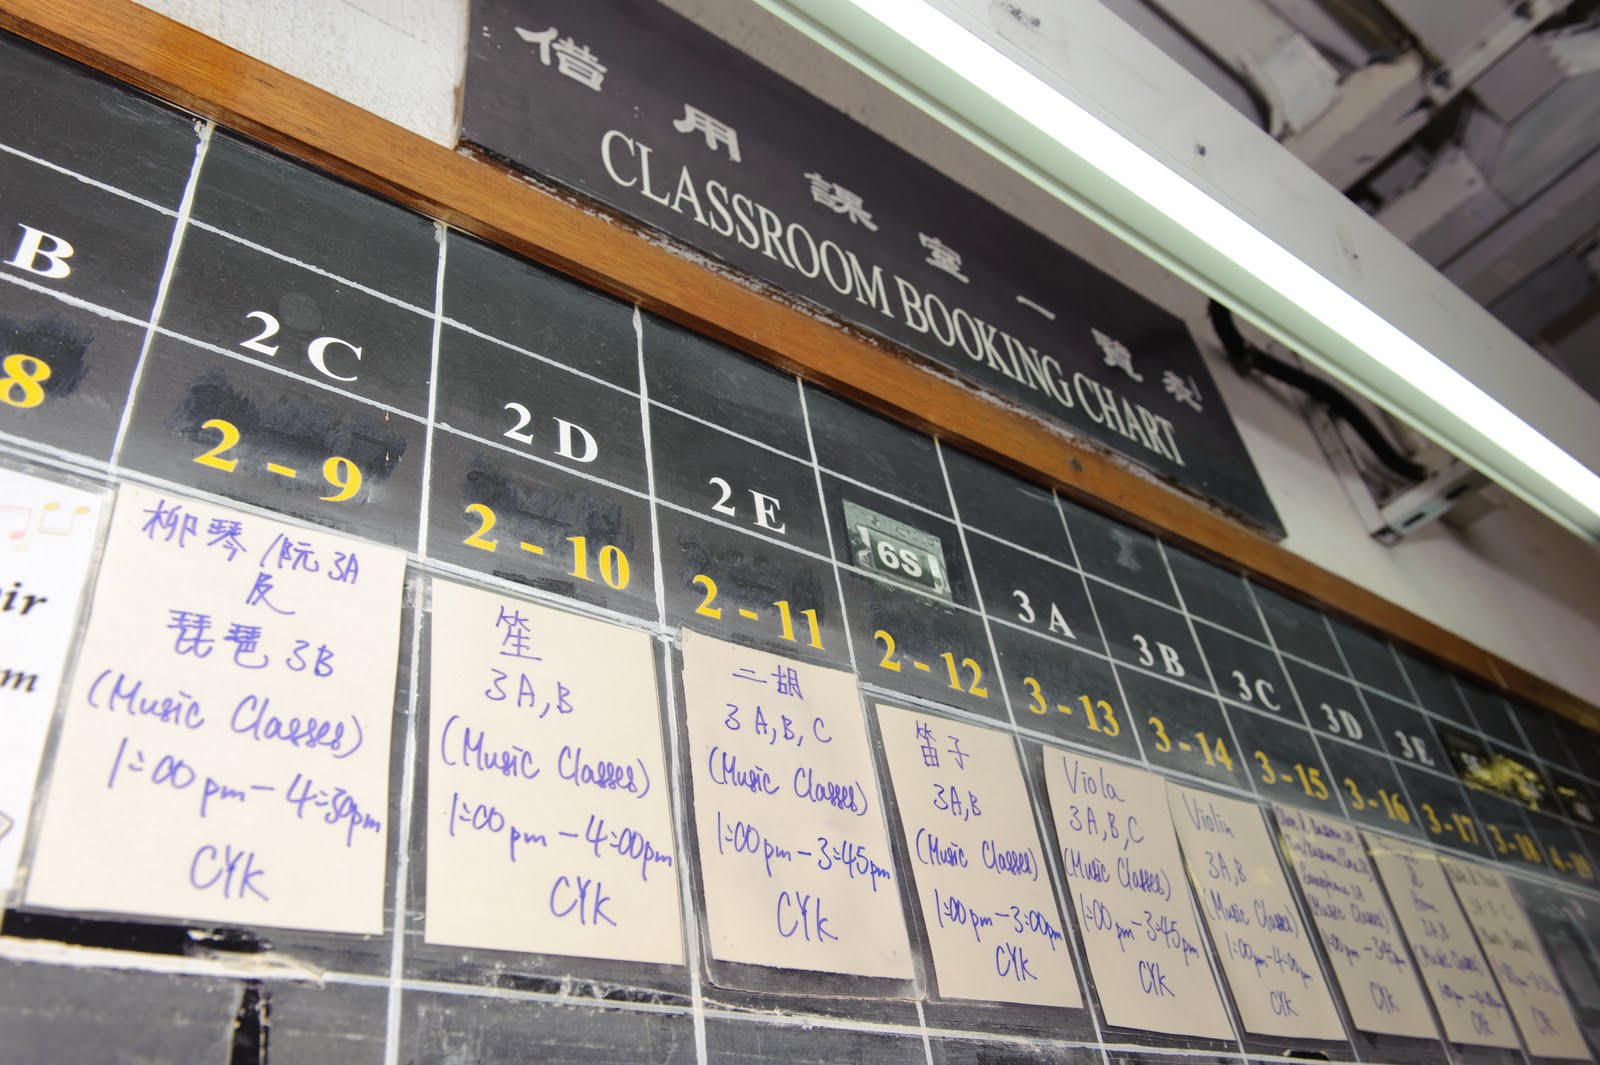 借用課室一覽表
CLASSROOM BOOKING CHART
B
2 C
2 D
2 E
6S
3 A
3 B
3C
3D
3E
8
2 - 9
2 - 10
2 - 11
2 - 12
3 - 13
3 - 14
3 - 15
3 - 16
3 - 17
3 - 18
4 - 19
ir
m
柳琴/阮 3A
及
琵琶 3B
(Music Classes)
1:00 pm - 4:30pm
CYK
笙
3A, B
(Music Classes)
1:00 pm - 4:00pm
CYK
二胡
3 A, B, C
(Music Classes)
1:00 pm - 3:45pm
CYK
笛子
3A, B
(Music Classes)
1:00pm - 3:00pm
CYK
Viola
3A, B, C
(Music Classes)
1:00 pm - 3:45pm
CYK
Violin
3A, B
(Music Classes)
1:00pm - 4:00pm
CYK
(Music Classes)
1:00 pm - 3:45pm
CYK
Horn
3A, B
(Music Classes)
CYK
CYK